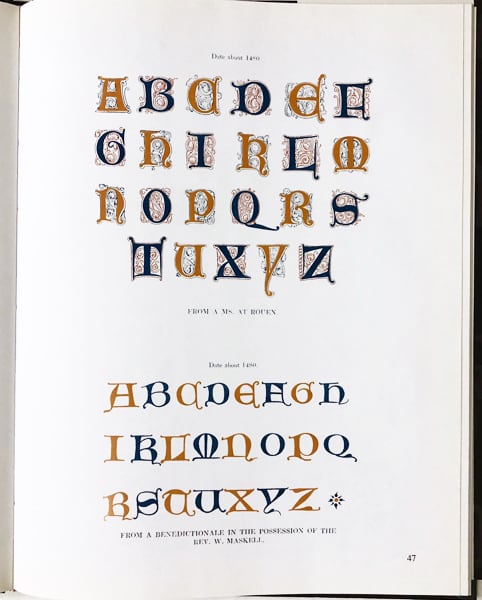 Date about 1480.
A B C D E F
G H I K L M
N O P Q R S
T U X Y Z
FROM A MS. AT ROUEN
Date about 1480.
A B C D E F G H
I K L M N O P Q
R S T U X Y Z
FROM A BENEDICTIONALE IN THE POSSESSION OF THE
REV. W. MASKELL.
47